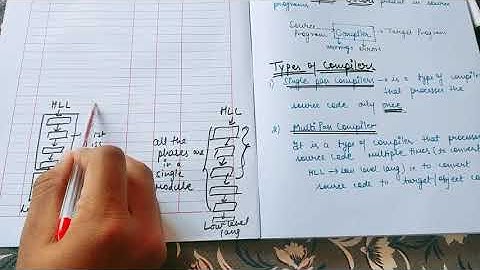 HLL
HLL
all the
phases are
in a
single
module
Low-level
lang
program, present in source
Source
program Compiler Target Program
errors
Types of Compilers
1) Single pass compilers → is a type of
that processes the
source code only once.
2) Multi Pass Compiler
It is a type of compiler that processes
source code multiple times (to convert
HLL → Low level lang) ie to convert
source code to target/object co